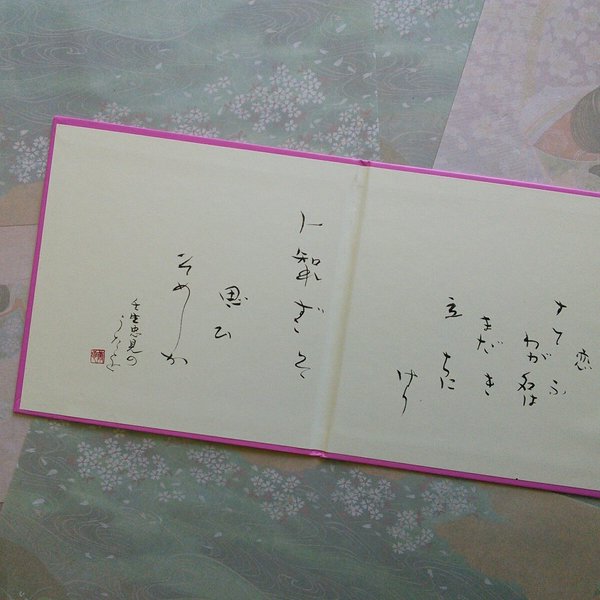 恋
すてふ
わが名は
まだき
立ちに
けり
人知れずこそ
思ひ
そめしか
壬生忠見の
うたを